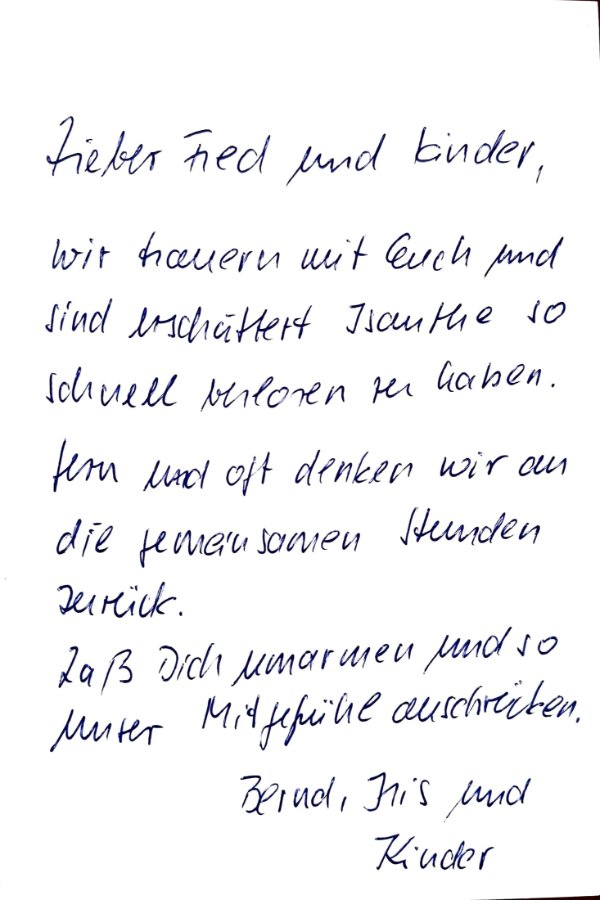 Lieber Fred und Kinder,
wir trauern mit Euch und
sind erschüttert Isanthe so
schnell verloren zu haben.
Gern und oft denken wir an
die gemeinsamen Stunden
zurück.
Laß Dich umarmen und so
unser Mitgefühl ausdrücken.
Bernd, Iris und
Kinder